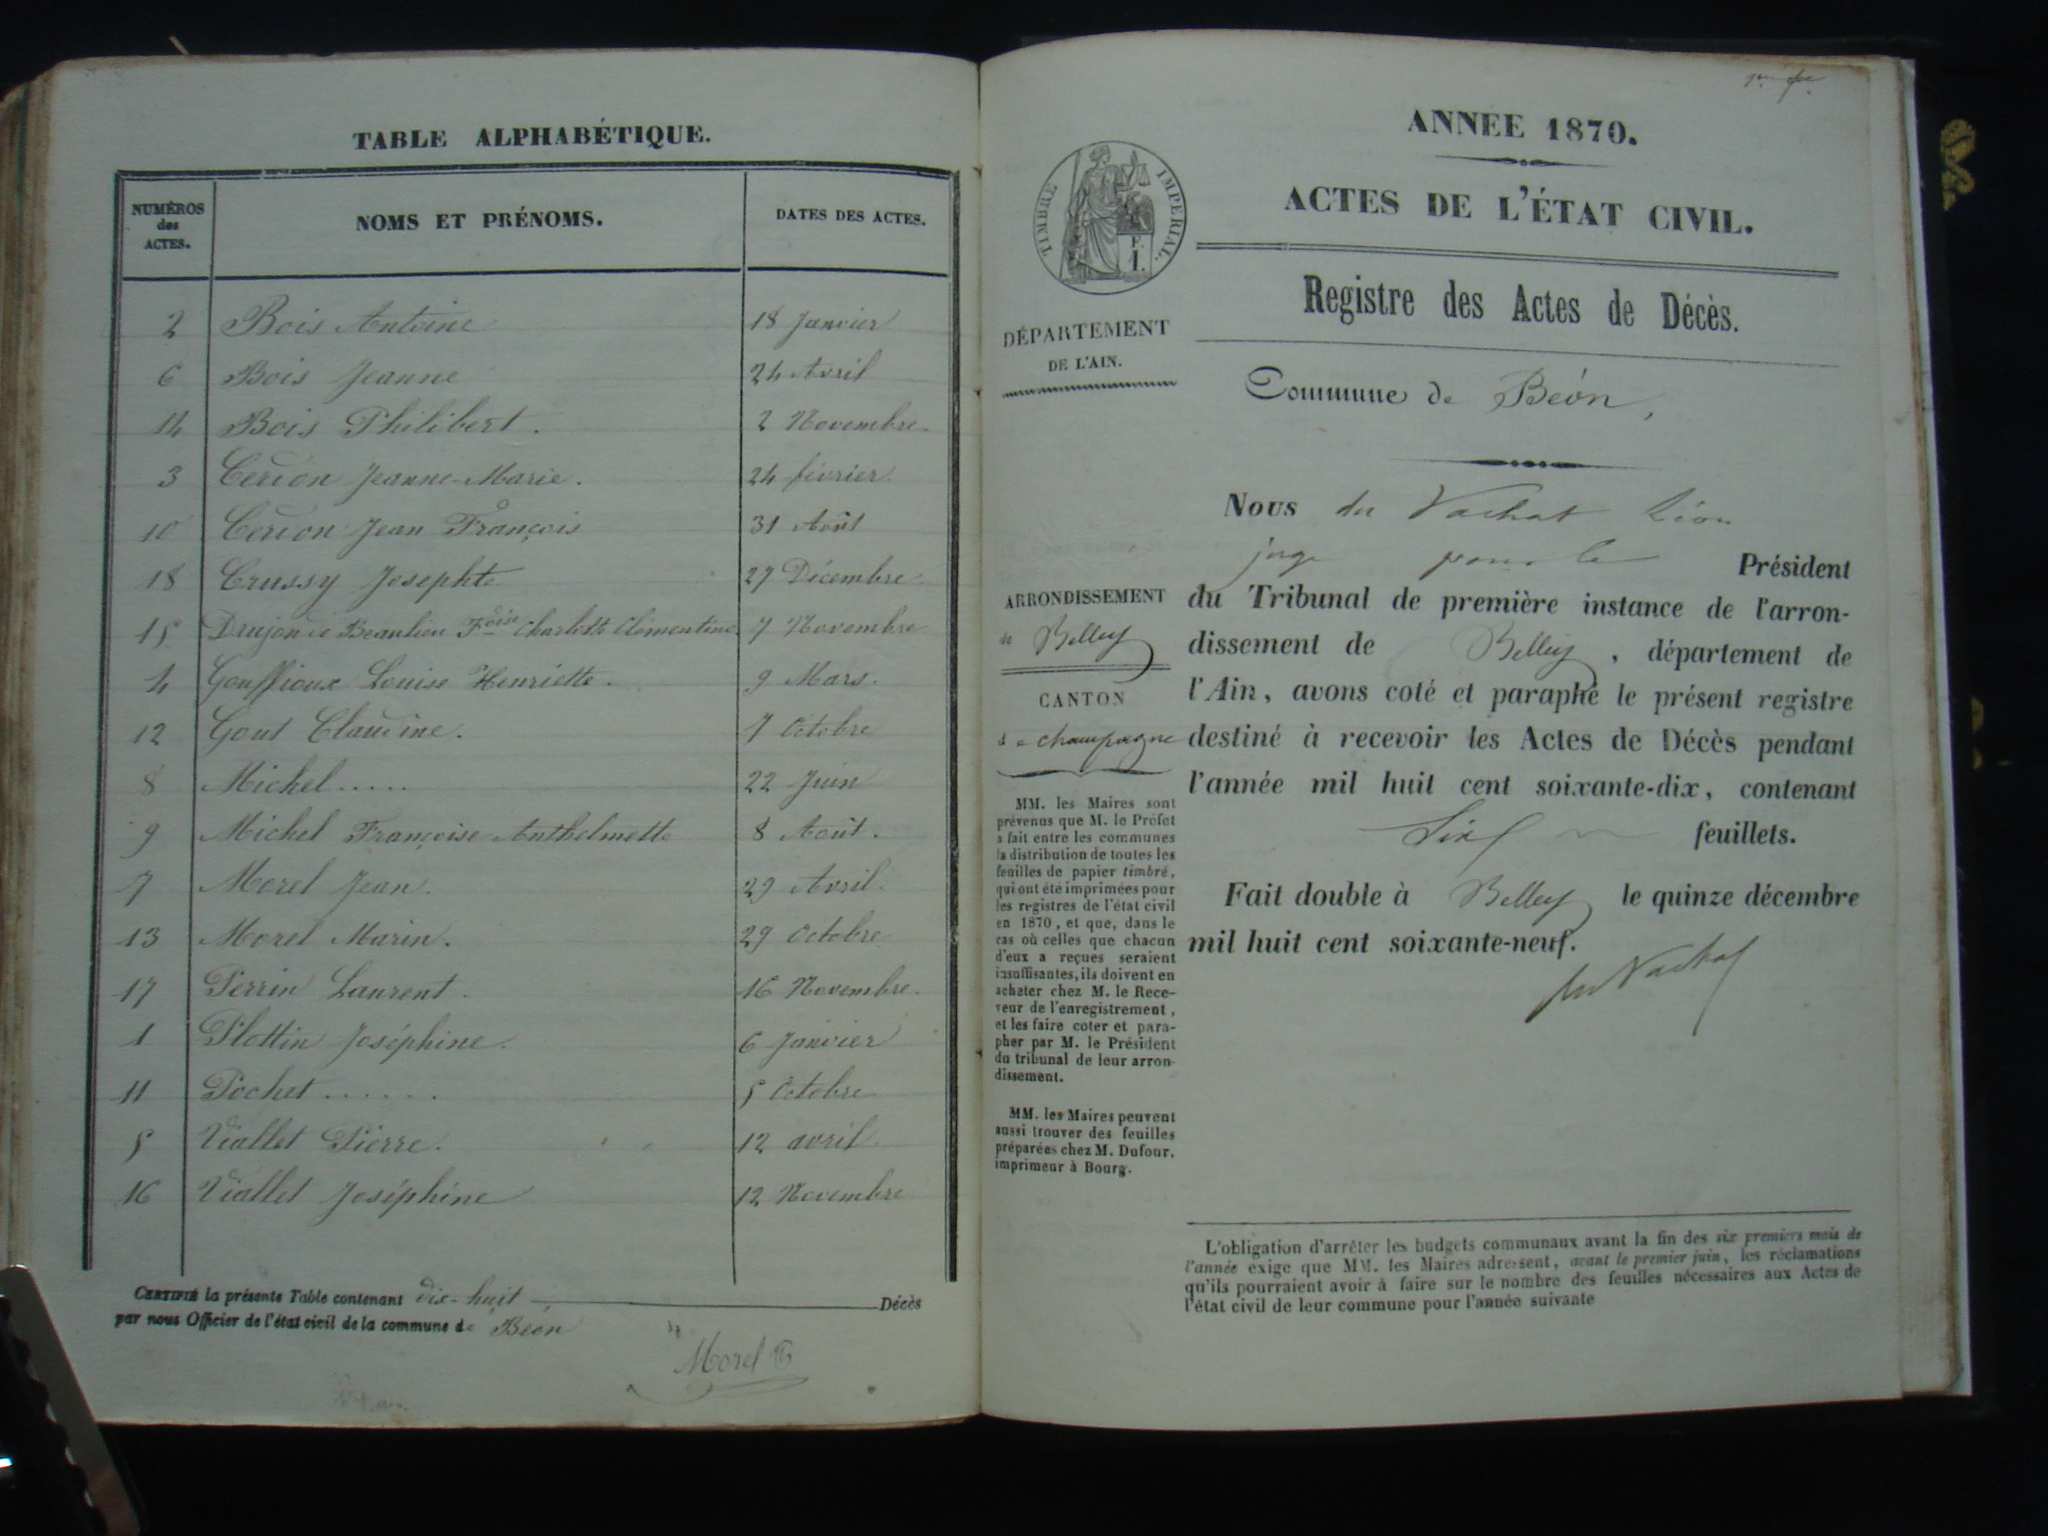 TABLE ALPHABÉTIQUE.
NUMÉROS des ACTES.
NOMS ET PRÉNOMS.
DATES DES ACTES.
2 Bois Antoine 18 Janvier
6 Bois Jeanne 24 Avril
14 Bois Philibert. 2 Novembre.
3 Cerdon Jeanne-Marie. 24 février.
10 Cerdon Jean François 31 Août
18 Crussy Josephte 27 Décembre
15 Drujon de Beaulieu Foise Charlotte Clémentine 7 Novembre
4 Gouffioux Louise Henriette. 9 Mars.
12 Gout Claudine. 7 Octobre
8 Michel..... 22 Juin
9 Michel Françoise Anthelmette 8 Août.
7 Morel Jean. 29 Avril.
13 Morel Marin. 29 Octobre
17 Perrin Laurent. 16 Novembre.
1 Plottin Joséphine. 6 Janvier
11 Pochet...... 5 Octobre
5 Viallet Pierre. 12 avril
16 Viallet Joséphine 12 Novembre
CERTIFIÉ la présente Table contenant dix-huit Décès
par nous Officier de l'état civil de la commune de Béon
Morel
ANNÉE 1870.
ACTES DE L'ÉTAT CIVIL.
TIMBRE IMPERIAL.
E. I.
Registre des Actes de Décès.
DÉPARTEMENT
DE L'AIN.
Commune de Béon,
Nous du Vachat Léon
juge pour le Président
du Tribunal de première instance de l'arron-
dissement de Belley, département de
l'Ain, avons coté et paraphé le présent registre
destiné à recevoir les Actes de Décès pendant
l'année mil huit cent soixante-dix, contenant
Six feuillets.
Fait double à Belley le quinze décembre
mil huit cent soixante-neuf.
du Vachat
ARRONDISSEMENT
de Belley
CANTON
de champagne
MM. les Maires sont
prévenus que M. le Préfet
a fait entre les communes
la distribution de toutes les
feuilles de papier timbré,
qui ont été imprimées pour
les registres de l'état civil
en 1870, et que, dans le
cas où celles que chacun
d'eux a reçues seraient
insuffisantes, ils doivent en
acheter chez M. le Rece-
veur de l'enregistrement,
et les faire coter et para-
pher par M. le Président
du tribunal de leur arron-
dissement.
MM. les Maires peuvent
aussi trouver des feuilles
préparées chez M. Dufour,
imprimeur à Bourg.
L'obligation d'arrêter les budgets communaux avant la fin des six premiers mois de
l'année exige que MM. les Maires adressent, avant le premier juin, les réclamations
qu'ils pourraient avoir à faire sur le nombre des feuilles nécessaires aux Actes de
l'état civil de leur commune pour l'année suivante